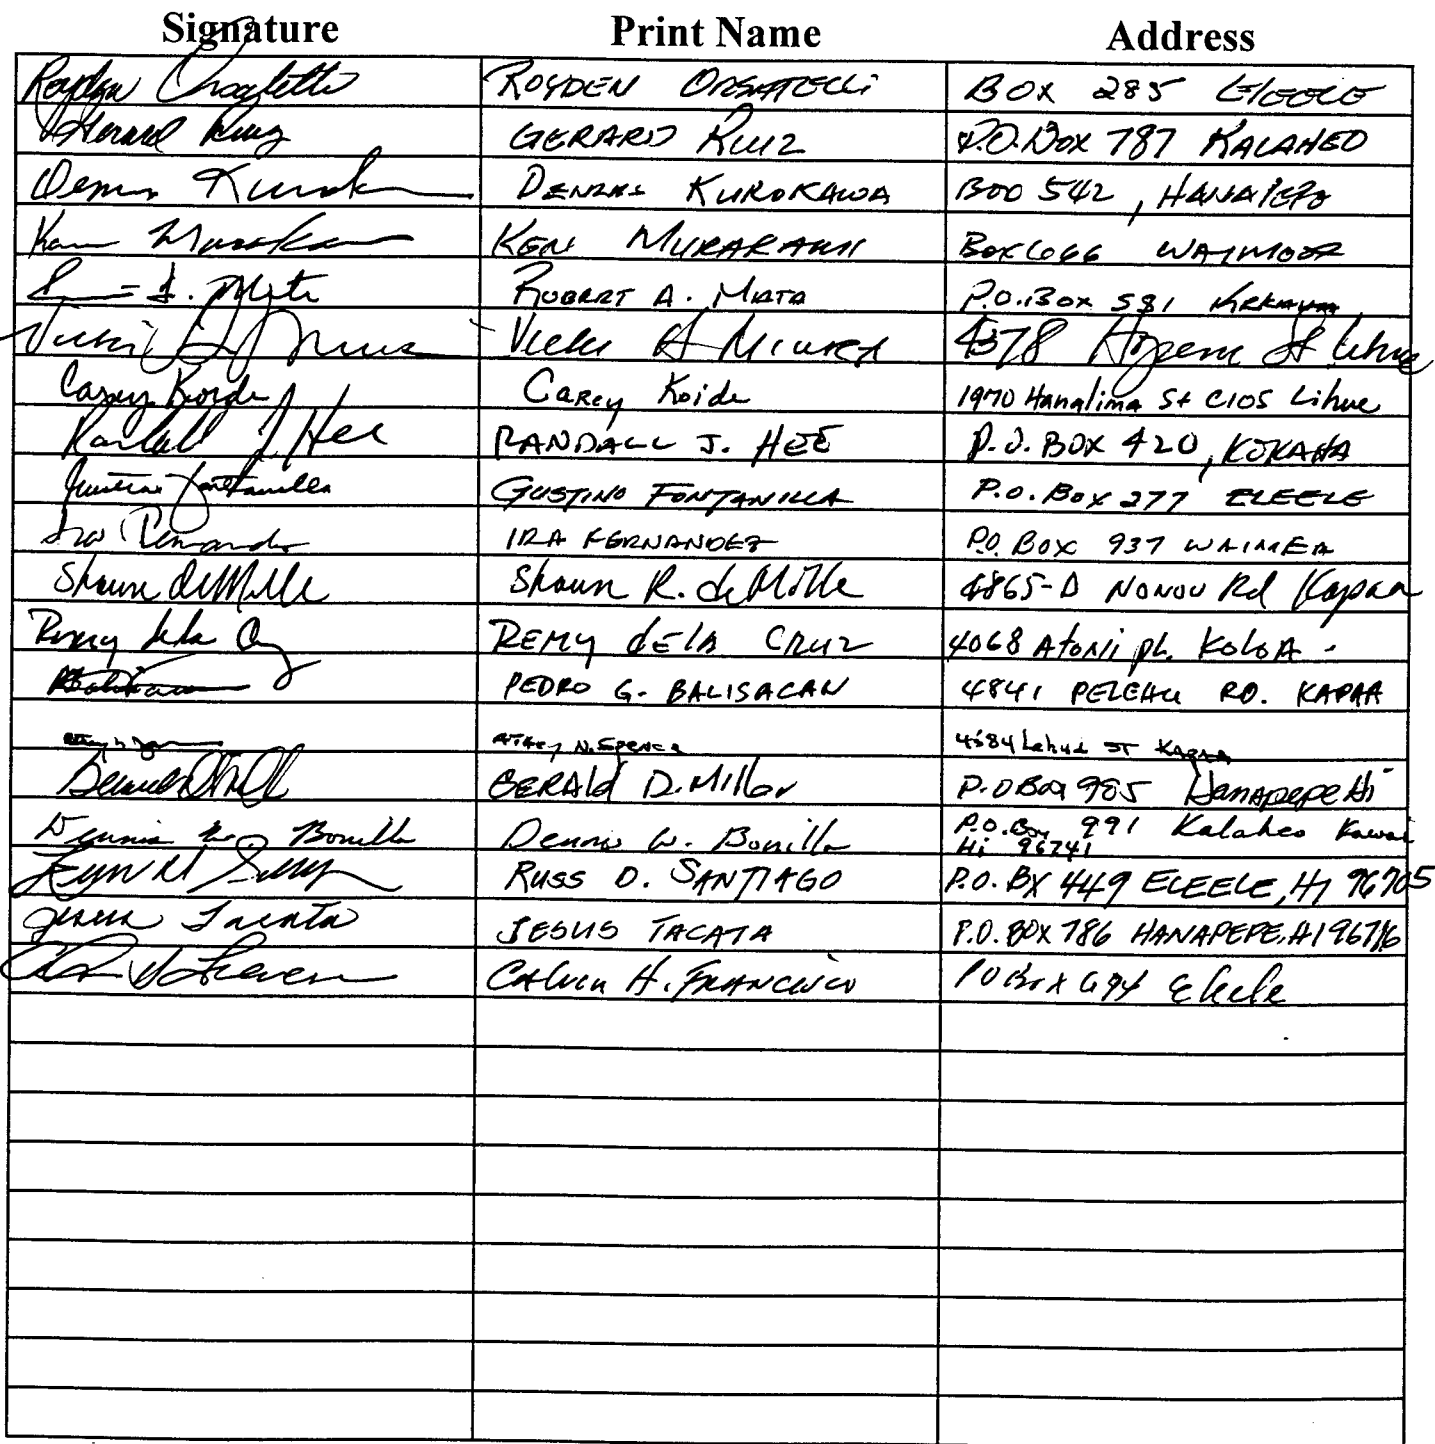 Signature Print Name Address
ROYDEN ORSATELLI BOX 285 ElEELE
Gerard Ruiz GERARD RUIZ P.O. Box 787 KALAHEO
KUROKAWA 542, HANAPEPE
Ken KEN MURAKAMI BOX
ROBERT A. MATA P.O. Box 581 KEKAHA
A MIURA 4378 St Lihue
Carey Koide Carey Koide 1970 Hanalima St C105 Lihue
Randall J Hee RANDALL J. HEE P.O. BOX 420, KEKAHA
GUSTINO FONTANILLA P.O. Box 277 ELEELE
Ira Fernandez IRA FERNANDEZ P.O. BOX 937 WAIMEA
Shaun deMille Shaun R. deMille 4865-D NONOU Rd Kapaa
Remy dela Cruz REMY dELA CRUZ 4068 pl. KoloA
PEDRO G. BALISACAN 4841 RD. KAPAA
N. Spence 4584 Lehua ST KAPAA
GERAld D. Miller P.O Box 985 Hanapepe Hi
Dennis W. Bonilla Dennis W. Bonilla P.O. Box 991 Kalaheo Kauai
Hi 96741
RUSS D. SANTIAGO P.O. BX 449 ELEELE, HI 96705
Jesus Tacata JESUS TACATA P.O. BOX 786 HANAPEPE, HI 96716
CALVIN H. FRANCISCO PO Box 694 Eleele